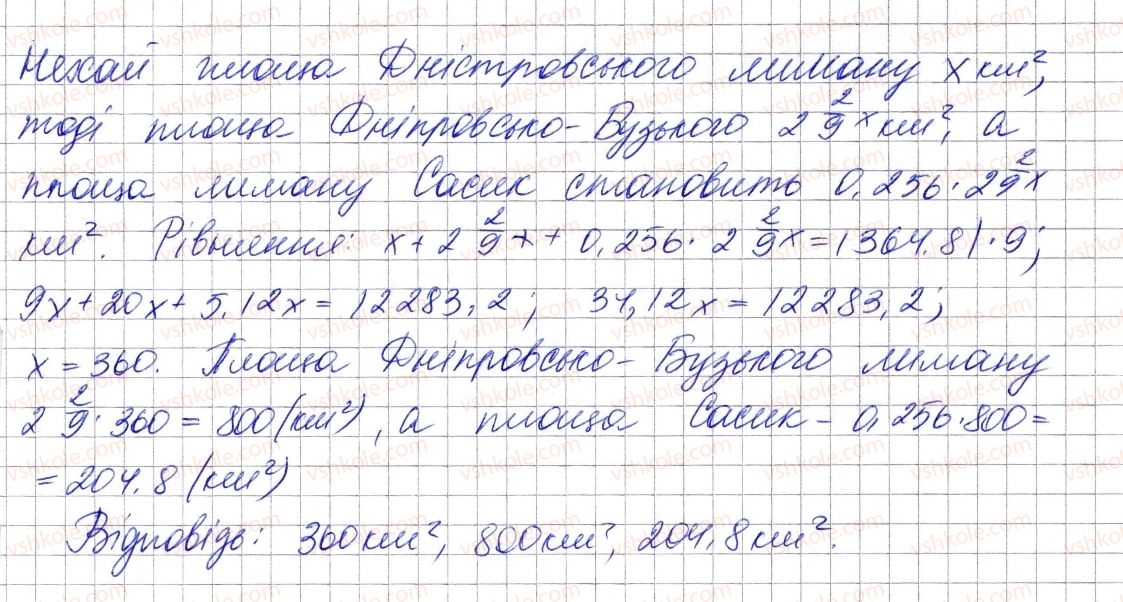 Нехай площа Дністровського лиману x км²,
тоді площа Дніпровсько-Бузького 2 2/9 x км², а
площа лиману Сасик становить 0,256·2 2/9 x
км². Рівняння: x + 2 2/9 x + 0,256·2 2/9 x = 1364,8 |·9;
9x + 20x + 5,12x = 12283,2; 34,12x = 12283,2;
x = 360. Площа Дніпровсько-Бузького лиману
2 2/9 · 360 = 800 (км²), а площа Сасик – 0,256·800 =
= 204,8 (км²)
Відповідь: 360 км², 800 км², 204,8 км².